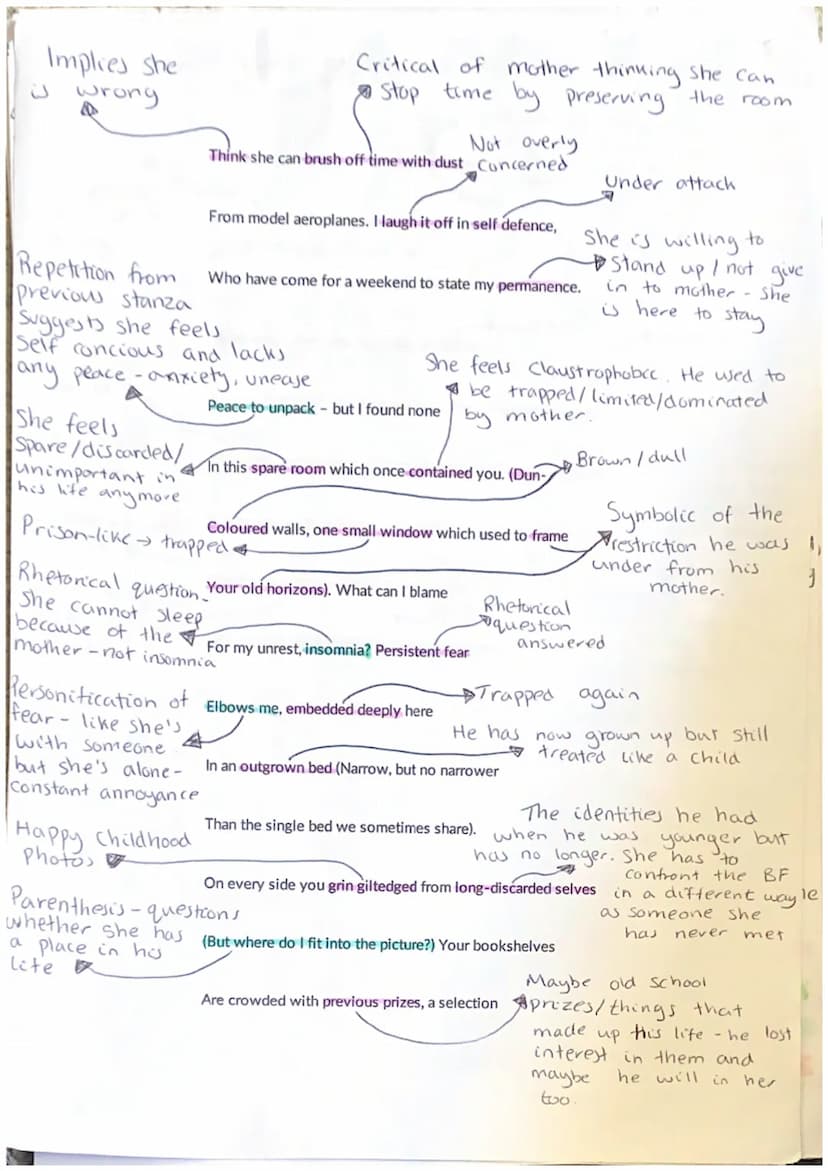 Implies she
is wrong
Critical of mother thinking she can
stop time by preserving the room
Think she can brush off time with dust
Not overly
concerned
Under attack
From model aeroplanes. I laugh it off in self defence,
She is willing to
stand up / not give
in to mother - she
is here to stay
Who have come for a weekend to state my permanence.
Repetition from
previous stanza
suggests she feels
self concious and lacks
any peace - anxiety, unease
She feels claustrophobic. He used to
be trapped/limited/dominated
by mother.
Peace to unpack – but I found none
She feels
spare/discarded/
unimportant in
his life anymore
In this spare room which once contained you. (Dun-
Brown / dull
Coloured walls, one small window which used to frame
Prison-like → trapped
Symbolic of the
restriction he was
under from his
mother.
Your old horizons). What can I blame
Rhetorical question -
she cannot sleep
because of the
mother - not insomnia
Rhetorical
question
answered
For my unrest, insomnia? Persistent fear
Elbows me, embedded deeply here
Trapped again
Personification of
fear - like she's
with someone
but she's alone -
constant annoyance
He has now grown up but still
treated like a child
In an outgrown bed (Narrow, but no narrower
Than the single bed we sometimes share).
Happy childhood
photos
The identities he had
when he was younger but
has no longer. She has to
confront the BF
in a different way ie
as someone she
has never met
On every side you grin giltedged from long-discarded selves
Parenthesis - questions
whether she has
a place in his
life
(But where do I fit into the picture?) Your bookshelves
Are crowded with previous prizes, a selection
Maybe old school
prizes/things that
made up his life - he lost
interest in them and
maybe he will in her
too.